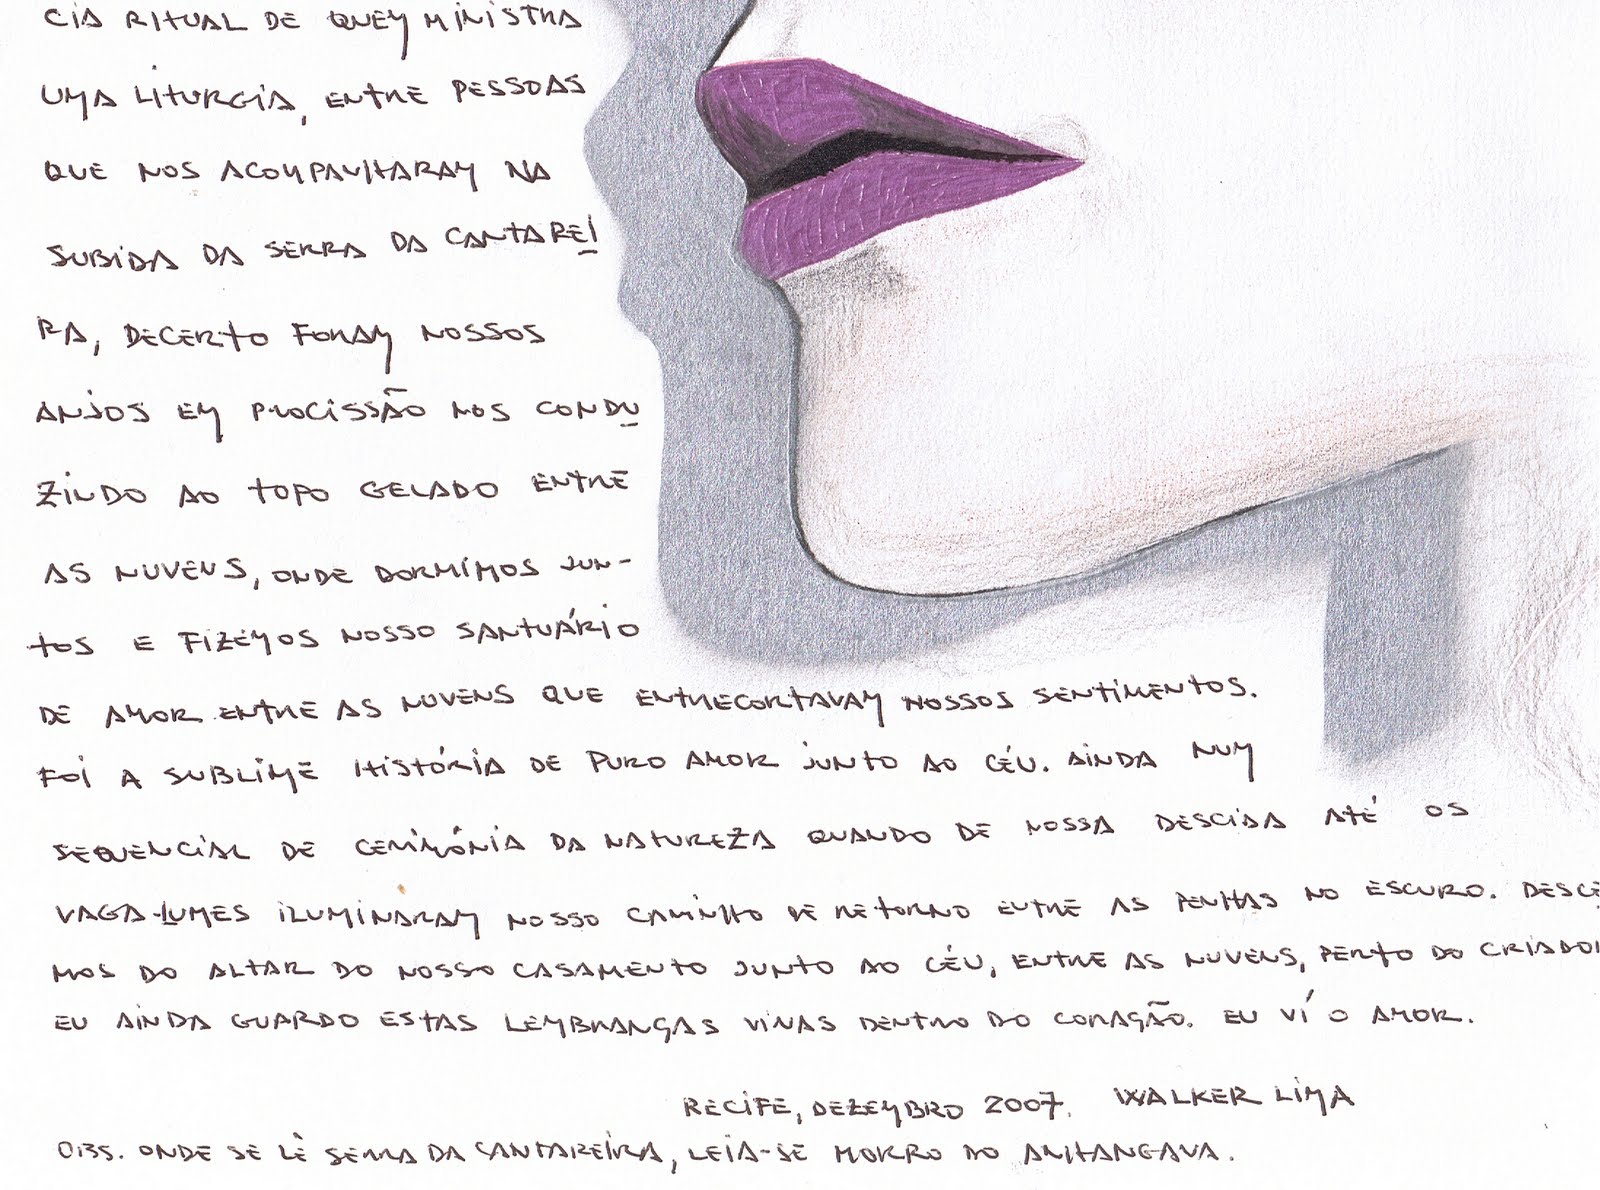 CIA RITUAL DE QUEM MINISTRA
UMA LITURGIA, ENTRE PESSOAS
QUE NOS ACOMPANHARAM NA
SUBIDA DA SERRA DA CANTAREI
RA, DECERTO FORAM NOSSOS
ANJOS EM PROCISSÃO NOS CONDU
ZINDO AO TOPO GELADO ENTRE
AS NUVENS, ONDE DORMIMOS JUN-
TOS E FIZEMOS NOSSO SANTUÁRIO
DE AMOR ENTRE AS NUVENS QUE ENTRECORTAVAM NOSSOS SENTIMENTOS.
FOI A SUBLIME HISTÓRIA DE PURO AMOR JUNTO AO CÉU. AINDA NUM
SEQUENCIAL DE CERIMÔNIA DA NATUREZA QUANDO DE NOSSA DESCIDA ATÉ OS
VAGA-LUMES ILUMINARAM NOSSO CAMINHO DE RETORNO ENTRE AS PENHAS NO ESCURO. DESCE
MOS DO ALTAR DO NOSSO CASAMENTO JUNTO AO CÉU, ENTRE AS NUVENS, PERTO DO CRIADOR
EU AINDA GUARDO ESTAS LEMBRANÇAS VIVAS DENTRO DO CORAÇÃO. EU VÍ O AMOR.
RECIFE, DEZEMBRO 2007. WALKER LIMA
OBS. ONDE SE LÊ SERRA DA CANTAREIRA, LEIA-SE MORRO DO ANHANGAVA.